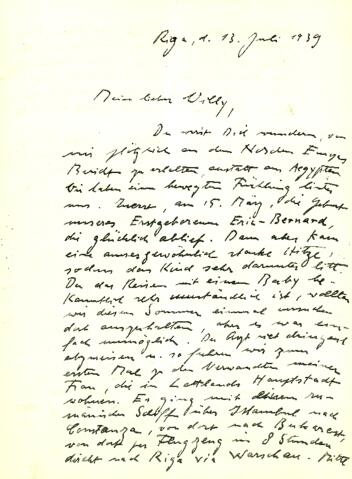 Riga, d. 13. Juli 1939
Mein lieber Willy,
Du wirst Dich wundern, von
mir plötzlich aus dem Norden Europas
Bericht zu erhalten, anstatt aus Aegypten.
Wir haben einen bewegten Frühling hinter
uns. Zuerst, am 15. März, die Geburt
unseres Erstgeborenen Eric-Bernard,
die glücklich ablief. Dann aber kam
eine aussergewöhnlich starke Hitze,
sodass das Kind sehr darunter litt.
Da das Reisen mit einem Baby be-
kanntlich sehr umständlich ist, wollten
wir diesen Sommer einmal unten
dort aushalten, aber es war ein-
fach unmöglich. Der Arzt riet dringend
abzureisen u. so fuhren wir zum
ersten Mal zu den Verwandten meiner
Frau, die in Lettlands Hauptstadt
wohnen. Es ging mit einem ru-
mänischen Schiff über Istambul nach
Constanza, von dort nach Bukarest,
von dort per Flugzeug in 8 Stunden
direkt nach Riga via Warschau.